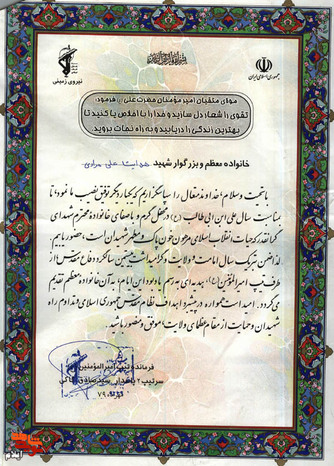 بسم الله الرحمن الرحیم
جمهوری اسلامی ایران
نیروی زمینی
مولای متقیان امیر مؤمنان حضرت علی (ع) فرمود:
تقوی را شعار دل سازید و خدا را با اخلاص یاد کنید تا
بهترین زندگی را دریابید و به راه نجات بروید.
خانواده معظم و بزرگوار شهید هدایت علی مرادی
با تحیت و سلام، خداوند متعال را سپاسگزاریم که یکبار دیگر توفیق نصیب ما نمود، تا
بمناسبت سال علی ابن ابی طالب (ع) در محفل گرم و با صفای خانواده محترم شهدای
گرانقدر که حیات انقلاب اسلامی مرهون خون پاک و مطهر شهیدان است، حضور یابیم.
لذا ضمن تبریک سال امامت و ولایت و گرامیداشت بیستمین سالگرد دفاع مقدس از
طرف تیپ امیرالمؤمنین (ع)، هدیه‌ای به رسم یادبود این ایام، به آن خانواده معظم تقدیم
می‌گردد. امید است همواره در پیشبرد اهداف نظام مقدس جمهوری اسلامی و تداوم راه
شهیدان و حمایت از مقام عظمای ولایت، موفق و منصور باشید.
فرمانده تیپ امیرالمؤمنین
سرتیپ ۲ پاسدار سید صادق
۷۹
ایلام